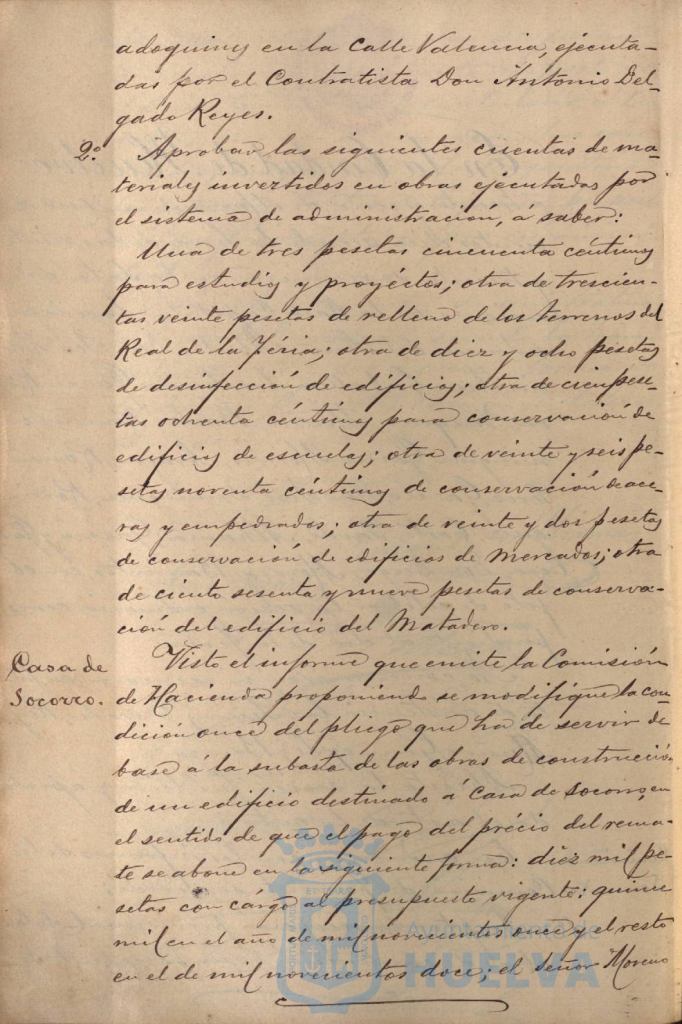 adoquines en la Calle Valencia, ejecuta-
das por el Contratista Don Antonio Del-
gado Reyes.
2º Aprobar las siguientes cuentas de ma-
teriales invertidos en obras ejecutadas por
el sistema de administración, á saber:
Una de tres pesetas cincuenta céntimos
para estudios y proyéctos; otra de trescien-
tas veinte pesetas de relleno de los terrenos del
Real de la Féria; otra de diez y ocho pesetas
de desinfección de edificios; otra de cien pese-
tas ochenta céntimos para conservación de
edificios de escuelas; otra de veinte y seis pe-
setas noventa céntimos de conservación de ace-
ras y empedrados; otra de veinte y dos pesetas
de conservación de edificios de Mercados; otra
de ciento sesenta y nueve pesetas de conserva-
ción del edificio del Matadero.
Casa de
Socorro.
Visto el informe que emite la Comisión
de Hacienda proponiendo se modifique la con-
dición once del pliego que ha de servir de
base á la subasta de las obras de construcción
de un edificio destinado á Casa de Socorro, en
el sentido de que el pago del précio del rema-
te se abone en la siguiente forma: diez mil pe-
setas con cárgo al presupuesto vigente: quince
mil en el año de mil novecientos once y el resto
en el de mil novecientos doce; el señor Moreno
Ayuntamiento de
HUELVA